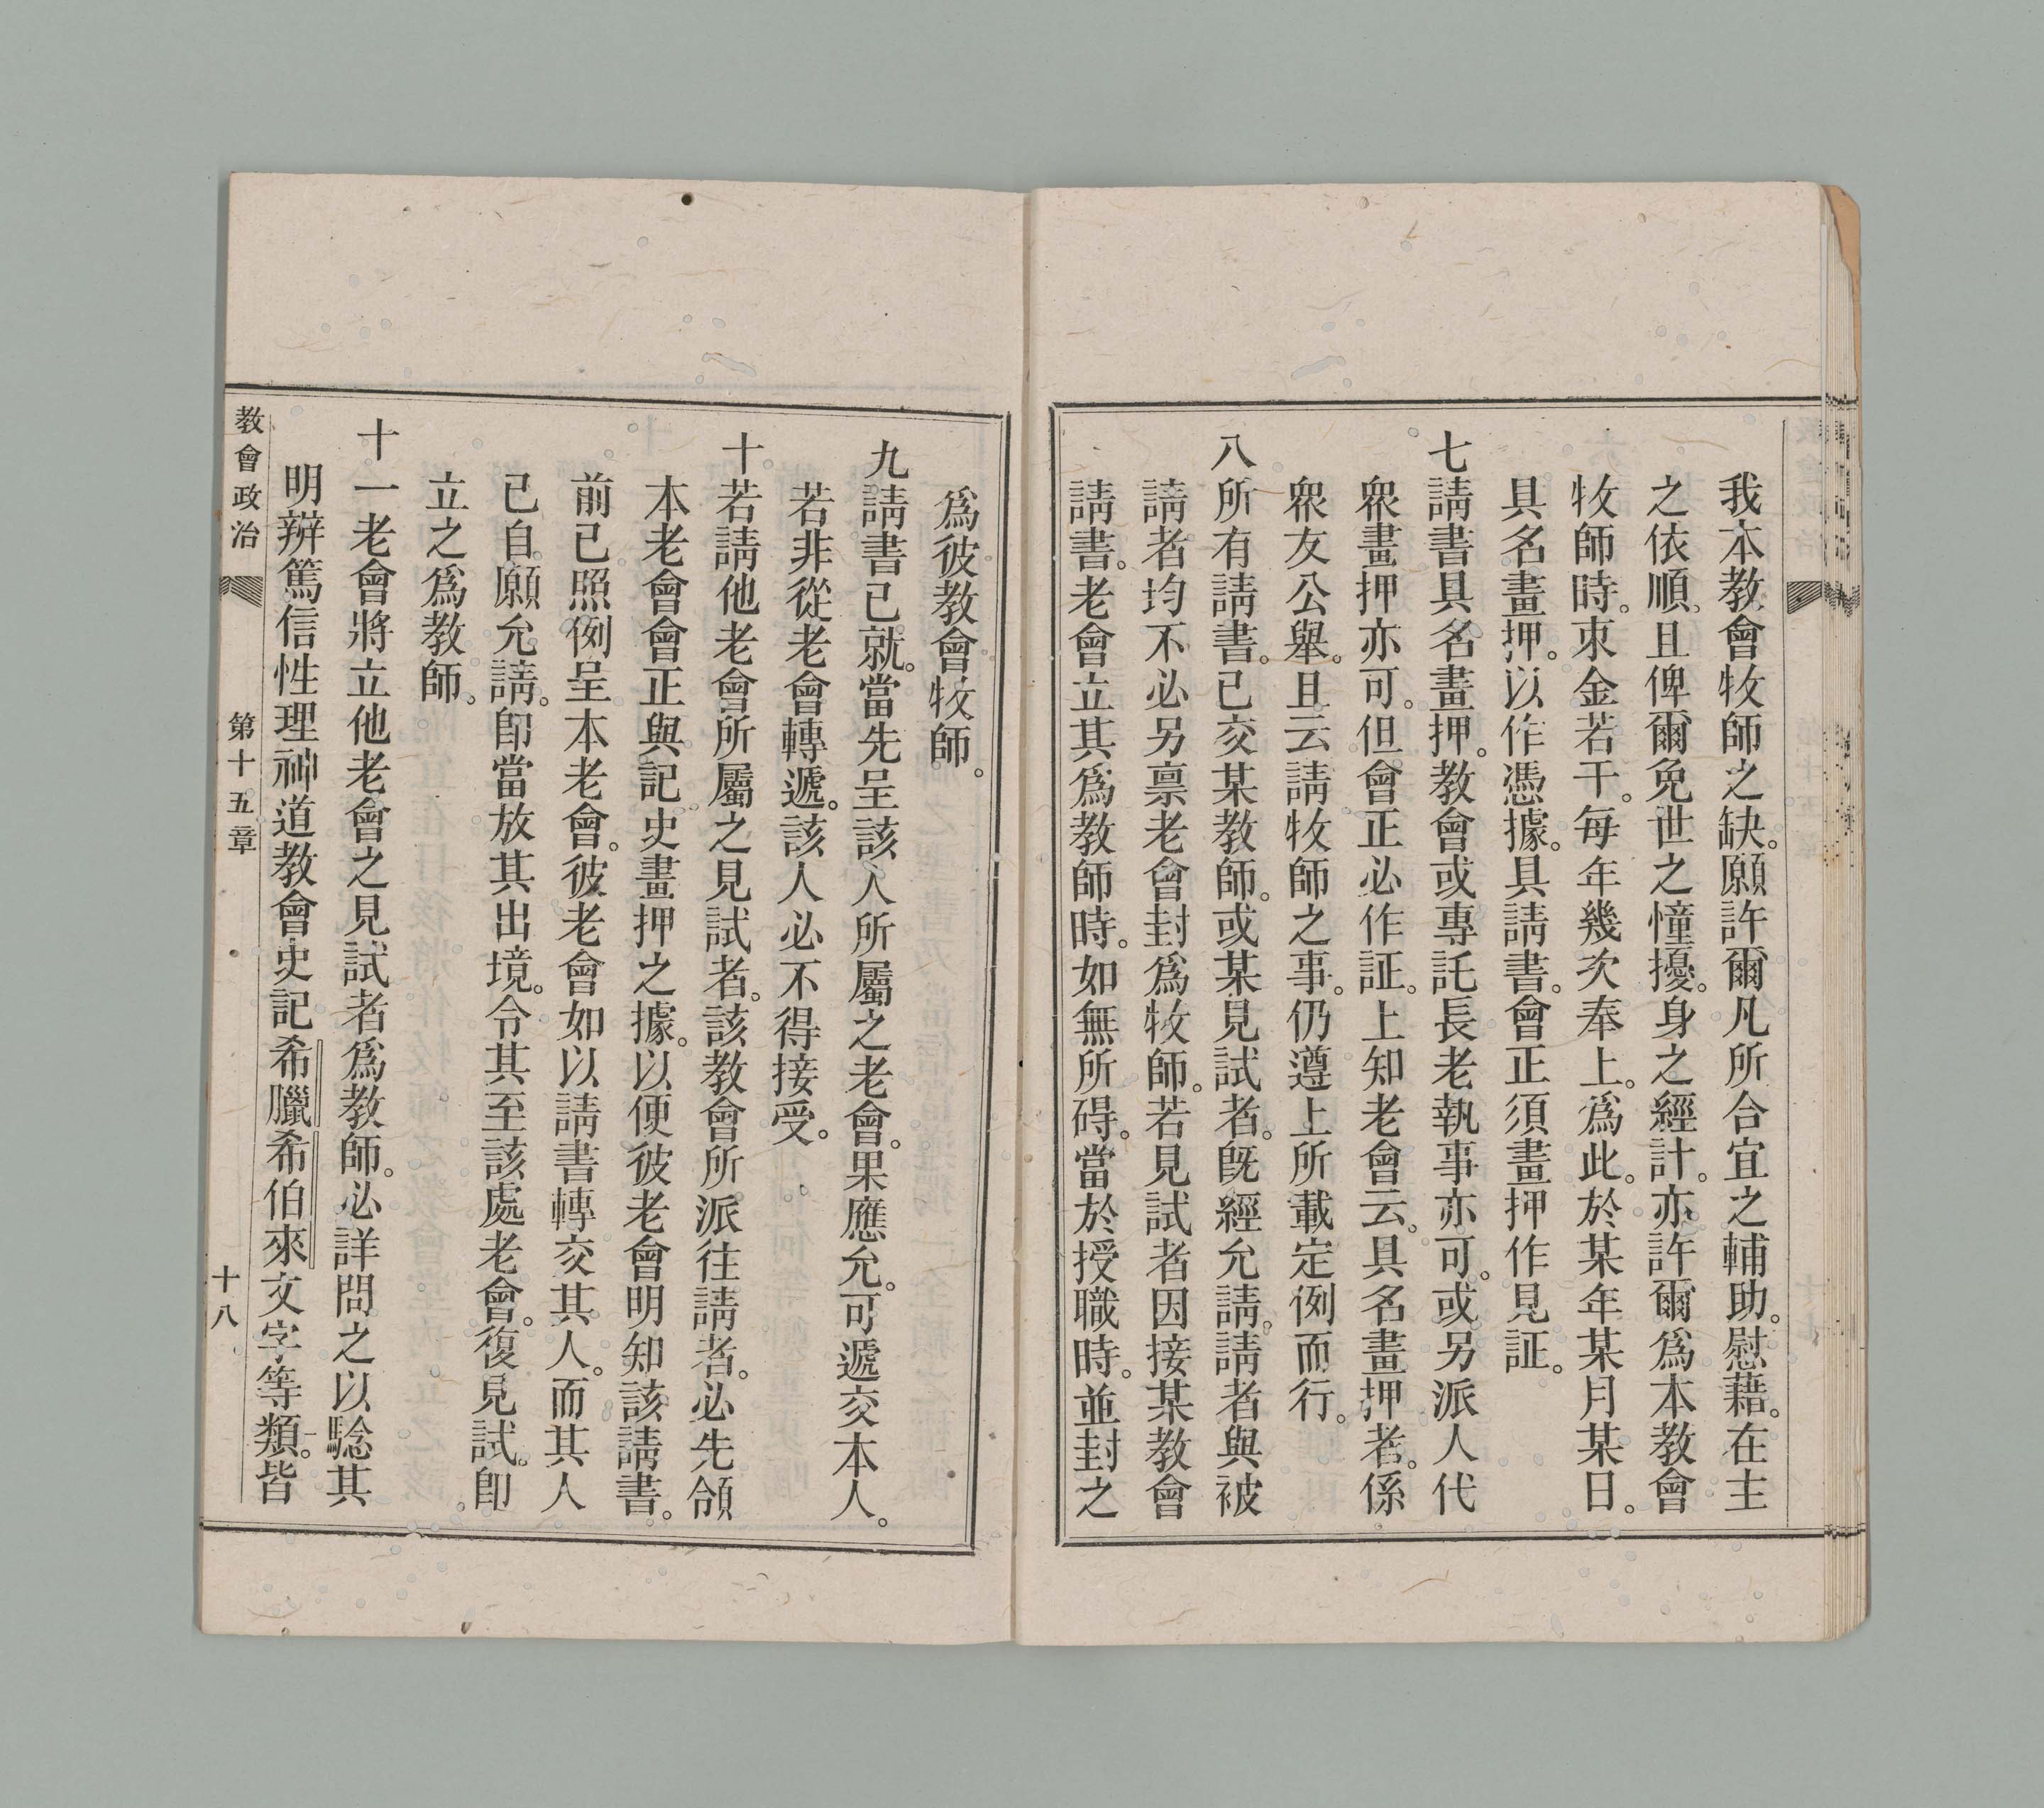 我本教會牧師之缺。願許爾凡所合宜之輔助。慰藉。在主
之依順。且俾爾免世之憧擾。身之經計。亦許爾爲本教會
牧師時。束金若干。每年幾次奉上。爲此。於某年某月某日。
具名畫押。以作憑據。具請書。會正須畫押作見証。
七請書具名畫押。教會或專託長老執事亦可。或另派人代
衆畫押亦可。但會正必作証。上知老會云。具名畫押者。係
衆友公舉。且云請牧師之事。仍遵上所載定例而行。
八所有請書。已交某教師。或某見試者。旣經允請。請者與被
請者。均不必另禀老會封爲牧師。若見試者因接某教會
請書。老會立其爲教師時。如無所碍。當於授職時。並封之
爲彼教會牧師。
九請書已就。當先呈該人所屬之老會。果應允。可遞交本人。
若非從老會轉遞。該人必不得接受。
十若請他老會所屬之見試者。該教會所派往請者。必先領
本老會會正與記史畫押之據。以便彼老會明知該請書。
前已照例呈本老會。彼老會如以請書轉交其人。而其人
已自願允請。卽當放其出境。令其至該處老會。復見試。卽
立之爲教師。
十一老會將立他老會之見試者爲教師。必詳問之以驗其
明辨篤信性理神道教會史記希臘希伯來文字等類。皆
教會政治 第十五章 十八